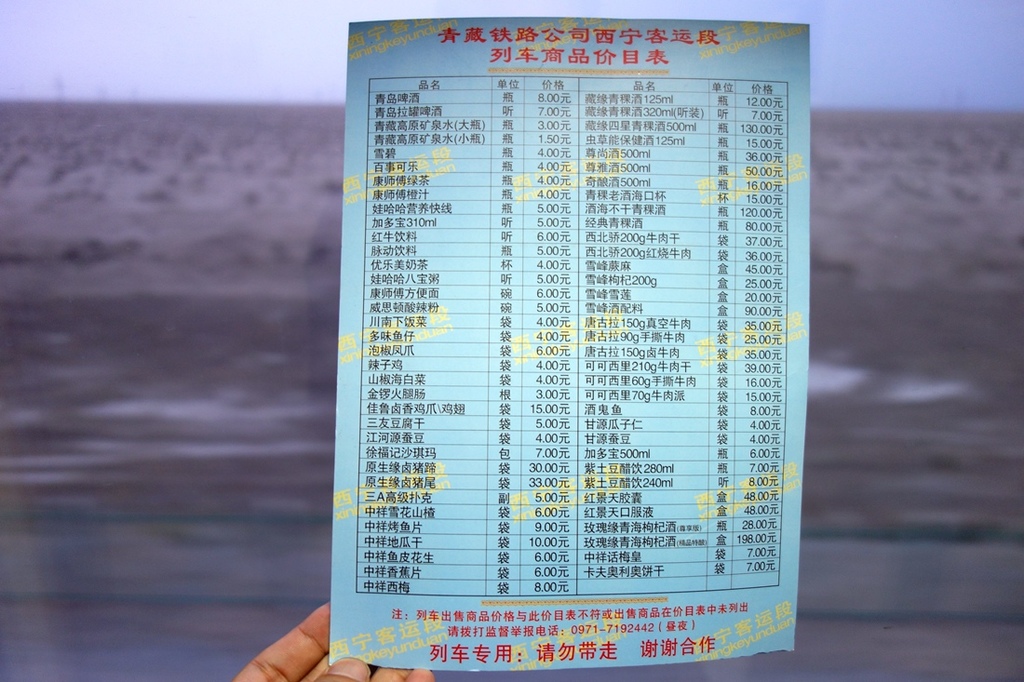 青藏铁路公司西宁客运段
列车商品价目表
品名 单位 价格 品名 单位 价格
青岛啤酒 瓶 8.00元 藏缘青稞酒125ml 瓶 12.00元
青岛拉罐啤酒 听 7.00元 藏缘青稞酒320ml(听装) 听 7.00元
青藏高原矿泉水(大瓶) 瓶 3.00元 藏缘四星青稞酒500ml 瓶 130.00元
青藏高原矿泉水(小瓶) 瓶 1.50元 虫草能保健酒125ml 瓶 15.00元
雪碧 瓶 4.00元 尊尚酒500ml 瓶 36.00元
百事可乐 瓶 4.00元 尊雅酒500ml 瓶 50.00元
康师傅绿茶 瓶 4.00元 奇酿酒500ml 瓶 16.00元
康师傅橙汁 瓶 4.00元 青稞老酒海口杯 杯 15.00元
娃哈哈营养快线 瓶 5.00元 酒海不干青稞酒 瓶 120.00元
加多宝310ml 听 5.00元 经典青稞酒 瓶 80.00元
红牛饮料 听 6.00元 西北骄200g牛肉干 袋 37.00元
脉动饮料 瓶 5.00元 西北骄200g红烧牛肉 袋 36.00元
优乐美奶茶 杯 4.00元 雪峰蕨麻 盒 45.00元
娃哈哈八宝粥 听 5.00元 雪峰枸杞200g 盒 25.00元
康师傅方便面 碗 6.00元 雪峰雪莲 盒 20.00元
威思顿酸辣粉 碗 5.00元 雪峰酒配料 盒 90.00元
川南下饭菜 袋 4.00元 唐古拉150g真空牛肉 袋 35.00元
多味鱼仔 袋 4.00元 唐古拉90g手撕牛肉 袋 25.00元
泡椒凤爪 袋 6.00元 唐古拉150g卤牛肉 袋 35.00元
辣子鸡 袋 4.00元 可可西里210g牛肉干 袋 39.00元
山椒海白菜 袋 4.00元 可可西里60g手撕牛肉 袋 16.00元
金锣火腿肠 根 3.00元 可可西里70g牛肉派 袋 15.00元
佳鲁卤香鸡爪\鸡翅 袋 15.00元 酒鬼鱼 袋 8.00元
三友豆腐干 袋 5.00元 甘源瓜子仁 袋 4.00元
江河源蚕豆 袋 4.00元 甘源蚕豆 袋 4.00元
徐福记沙琪玛 包 7.00元 加多宝500ml 瓶 6.00元
原生缘卤猪蹄 袋 30.00元 紫土豆醋饮280ml 瓶 7.00元
原生缘卤猪尾 袋 33.00元 紫土豆醋饮240ml 听 8.00元
三A高级扑克 副 5.00元 红景天胶囊 盒 48.00元
中祥雪花山楂 袋 6.00元 红景天口服液 盒 48.00元
中祥烤鱼片 袋 9.00元 玫瑰缘青海枸杞酒(尊享版) 瓶 28.00元
中祥地瓜干 袋 10.00元 玫瑰缘青海枸杞酒(精品特酿) 盒 198.00元
中祥鱼皮花生 袋 6.00元 中祥话梅皇 袋 7.00元
中祥香蕉片 袋 6.00元 卡夫奥利奥饼干 袋 7.00元
中祥西梅 袋 8.00元
注：列车出售商品价格与此价目表不符或出售商品在价目表中未列出
请拨打监督举报电话：0971-7192442（昼夜）
列车专用：请勿带走 谢谢合作
西宁客运段
xiningkeyunduan